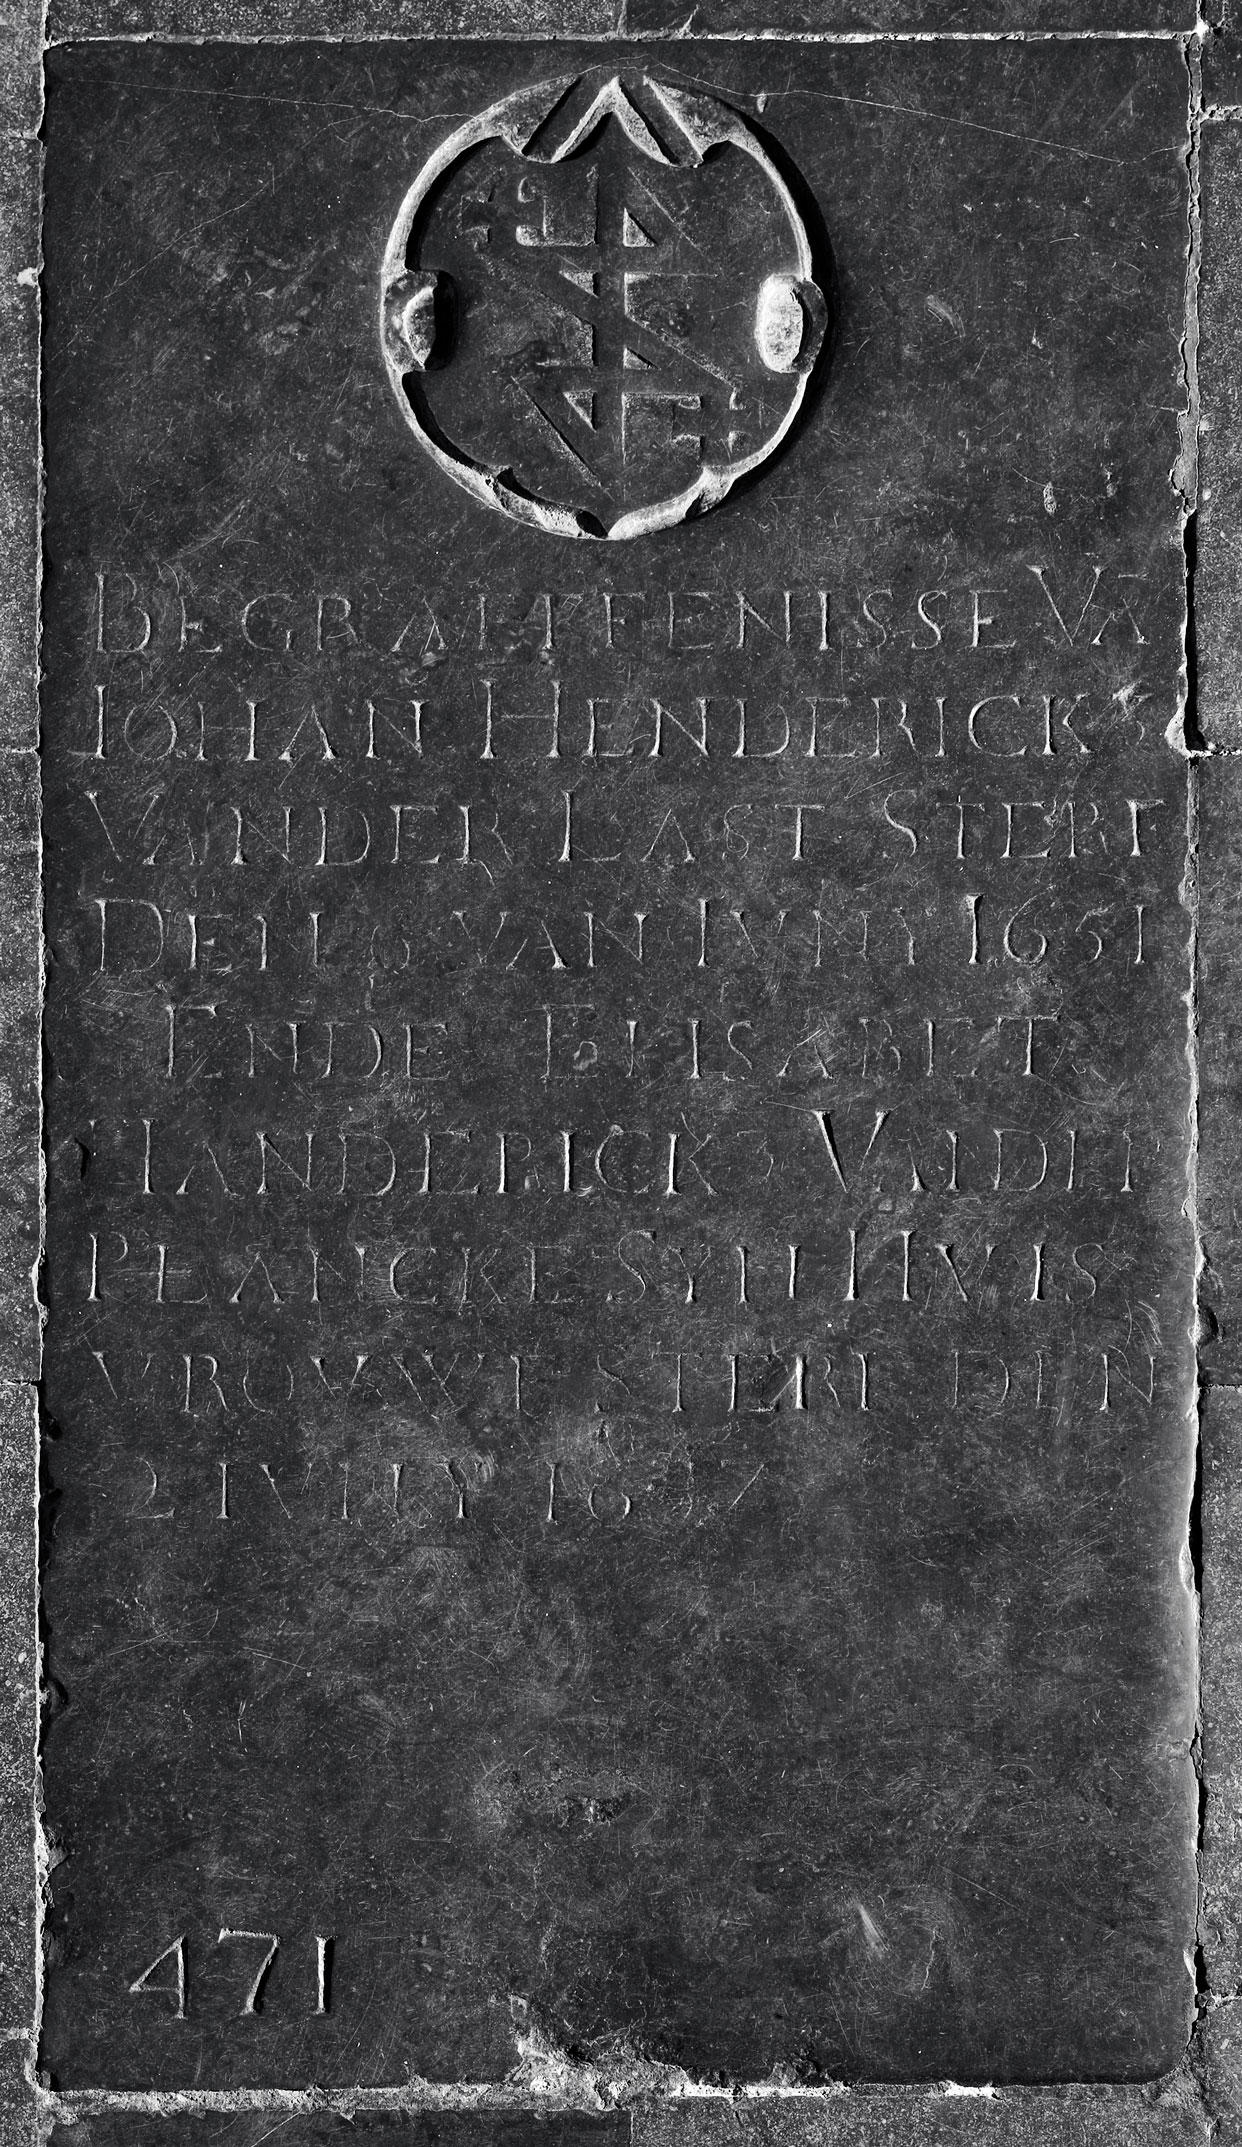 BEGRAEFFENISSE VĀ
IOHAN HENDERICKS
VANDER LAST STERF
DEN 10 VAN IVNY 1651
ENDE ELISABET
HANDERICKS VANDER
PLANCKE SYN HVIS
VROVWE STERF DEN
2 IVNY
471